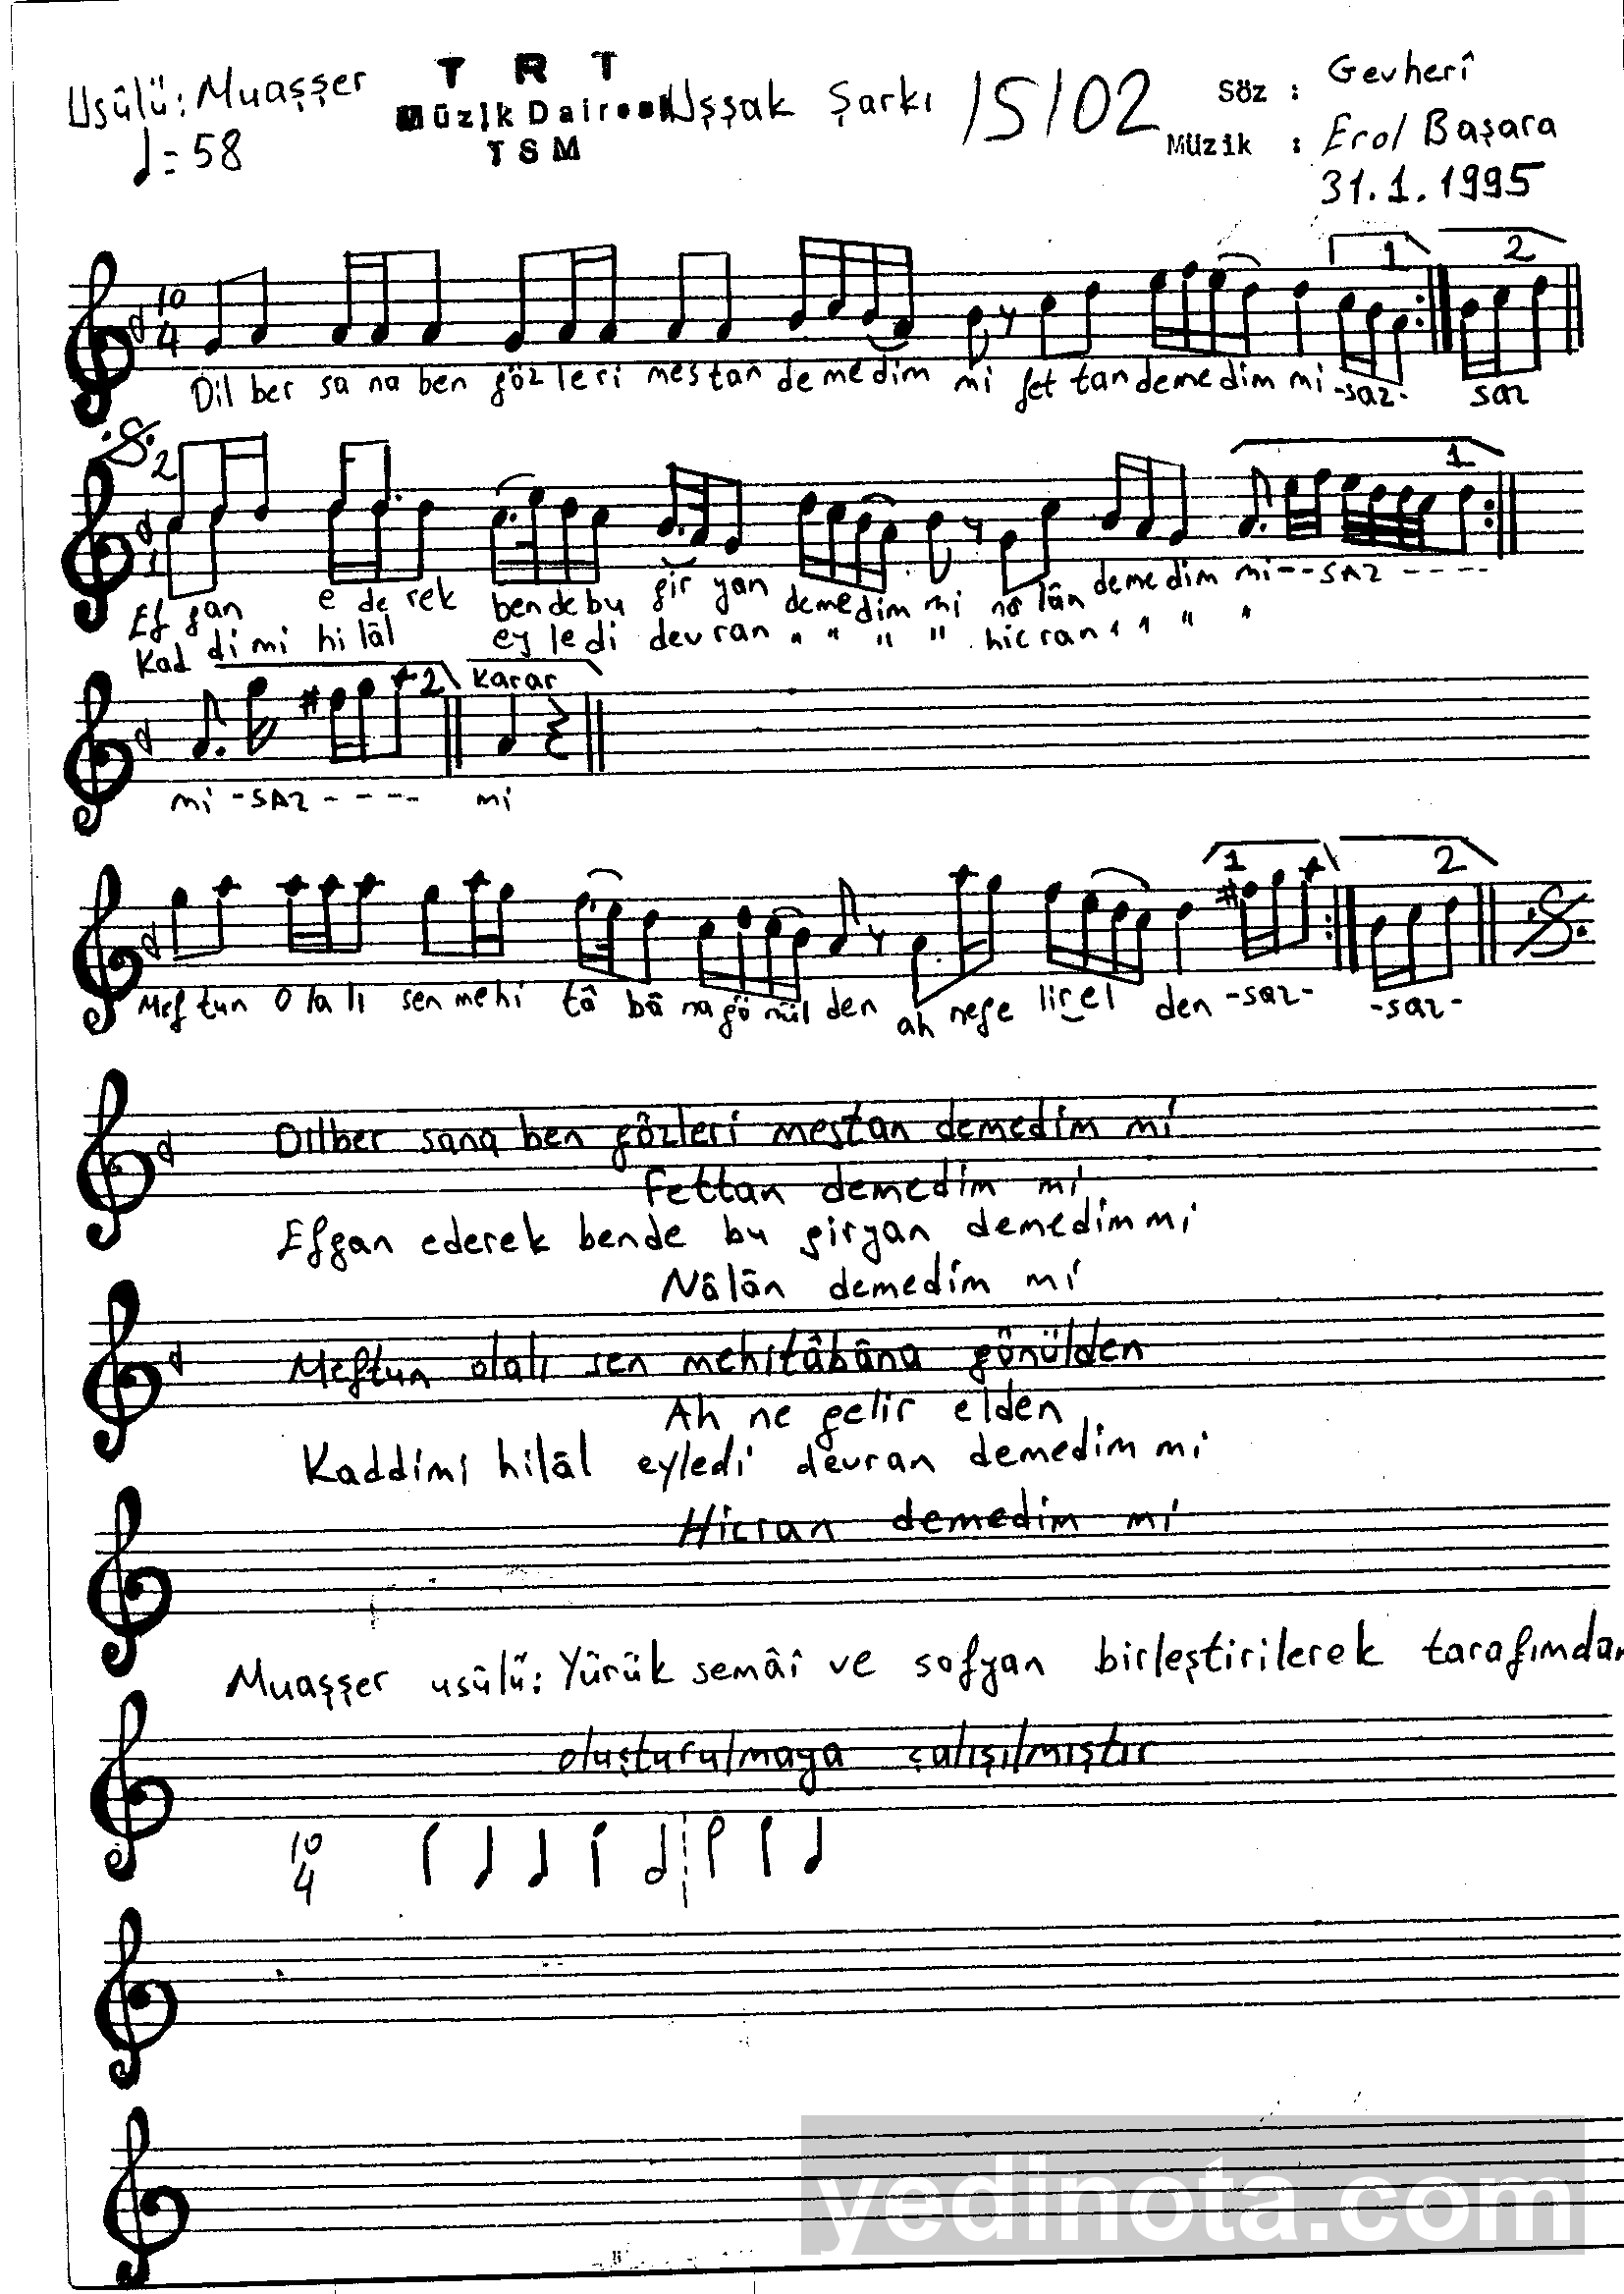 Usûlü: Muaşşer
♩=58
T R T
Müzik Dairesi
TSM
Uşşak Şarkı 15102
Söz : Gevherî
Müzik : Erol Başara
31.1.1995
10
4
1
2
Dil ber sa na ben göz le ri mes tan de me dim mi fet tan de me dim mi -saz- saz
2
1
1
Ef gan e de rek ben de bu gir yan de me dim mi nâ lân de me dim mi - - SAZ - - - -
Kad di mi hi lâl ey le di dev ran " " " " hic ran " " " "
2
karar
mi - SAZ - - - - mi
1
2
Mef tun o la lı sen me hi tâ bâ na gö nül den ah ne ge lir el den -saz- -saz-
Dilber sana ben gözleri mestan demedim mi
Fettan demedim mi
Efgan ederek bende bu giryan demedim mi
Nâlân demedim mi
Meftun olalı sen mehitâbâna gönülden
Ah ne gelir elden
Kaddimi hilâl eyledi devran demedim mi
Hicran demedim mi
Muaşşer usûlü: Yürük semâî ve sofyan birleştirilerek tarafımdan
oluşturulmaya çalışılmıştır
10
4
yedinota.com